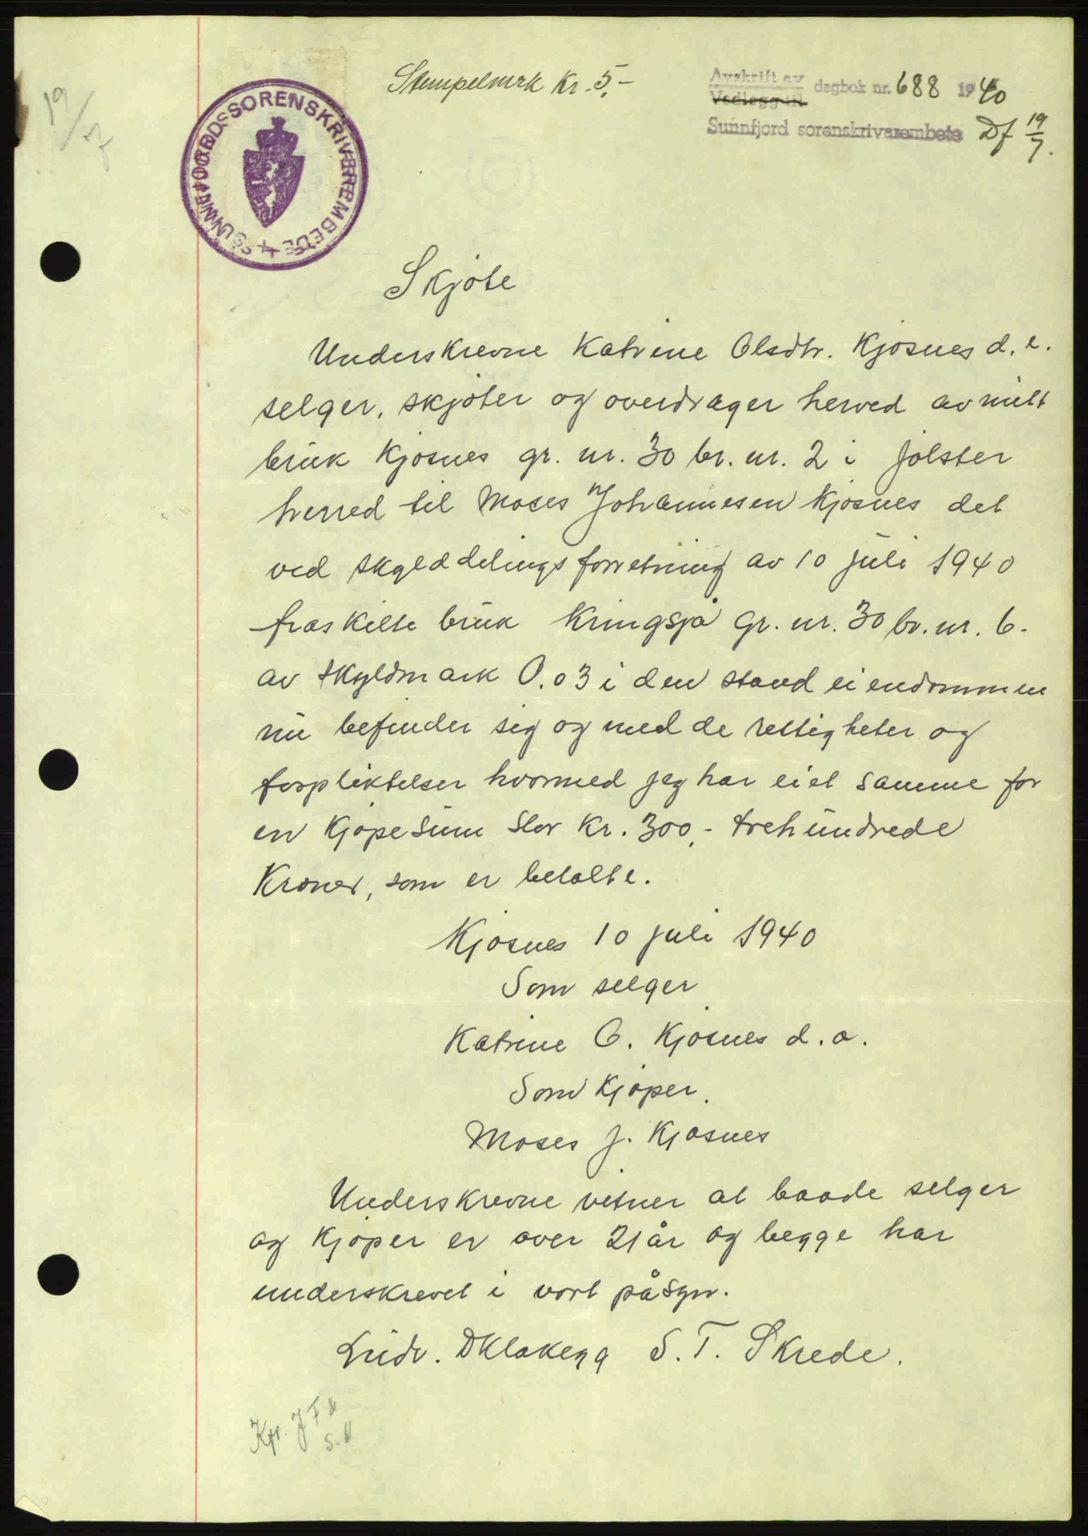 19/7
Stempelmrk kr. 5,-
Avskrift av
Vedlegg til
dagbok nr. 688 1940
Sunnfjord sorenskrivarembete Df 19/7.
SORENSKRIVEREMBEDE
Skjöte
Underskrevne Katrine Olsdtr. Kjösnes d. e.
selger, skjöter og overdrager herved av mitt
bruk Kjösnes gr. nr. 30 br. nr. 2 i Jölster
herred til Moses Johannesen Kjösnes det
ved skylddelingsforretning av 10 juli 1940
fraskilte bruk Kringsjå gr. nr. 30 br. nr. 6.
av skyldmark 0.03 i den stand eiendommen
nu befinder sig og med de rettigheter og
forpliktelser hvormed jeg har eiet samme for
en kjöpesum stor kr. 300,- trehundrede
Kroner, som er betalte.
Kjösnes 10 juli 1940
Som selger
Katrine O. Kjösnes d. a.
Som kjöper.
Moses J. Kjösnes
Underskrevne vitner at baade selger
og kjöper er over 21 år og begge har
underskrevet i vort påsyn.
Ludv. DKlakegg S. T. Skrede.
Kpr. J F